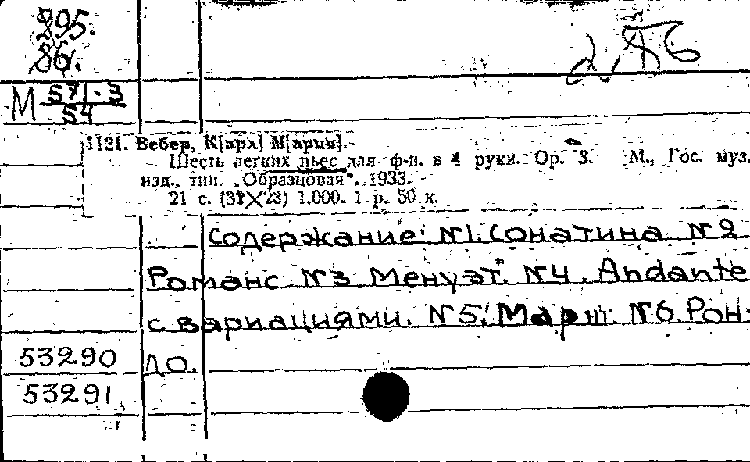 295.
86.
2,86
М 571-3
54
1121. Вебер, К[арл] М[ария].-
Шесть легких пьес для ф-п. в 4 руки. Op. 3. М., Гос. муз.
изд., тип. „Образцовая“, 1933.
21 с. (31×23) 1.000. 1 р. 50 к.
Содержание: №1. Сонатина №2
Романс №3 Менуэт №4. Andante
с вариациями. №5. Марш №6 Рон-
53290 до.
53291